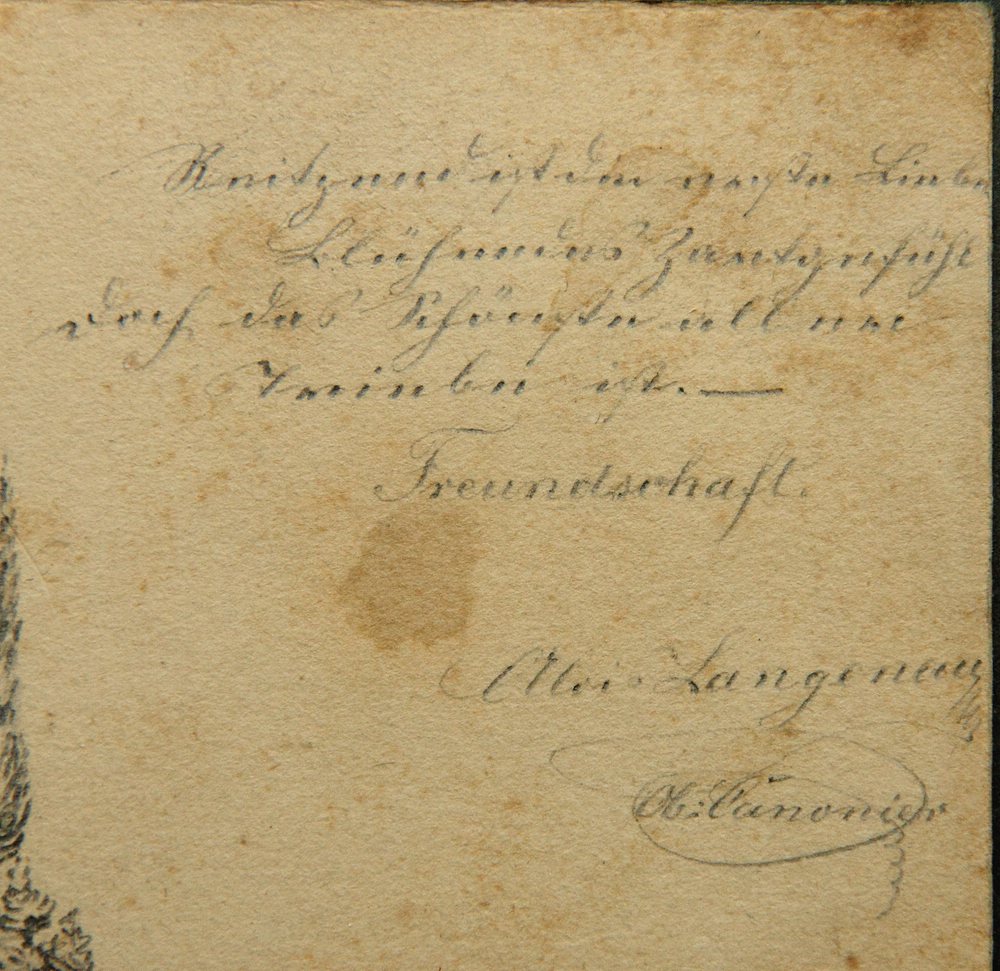 Reitzend ist der erste Liebe
Blühendes Zartgefühl
Doch das Schönste aller
Triebe ist. —
Freundschaft.
Alois Langenau
Ob: Canonier